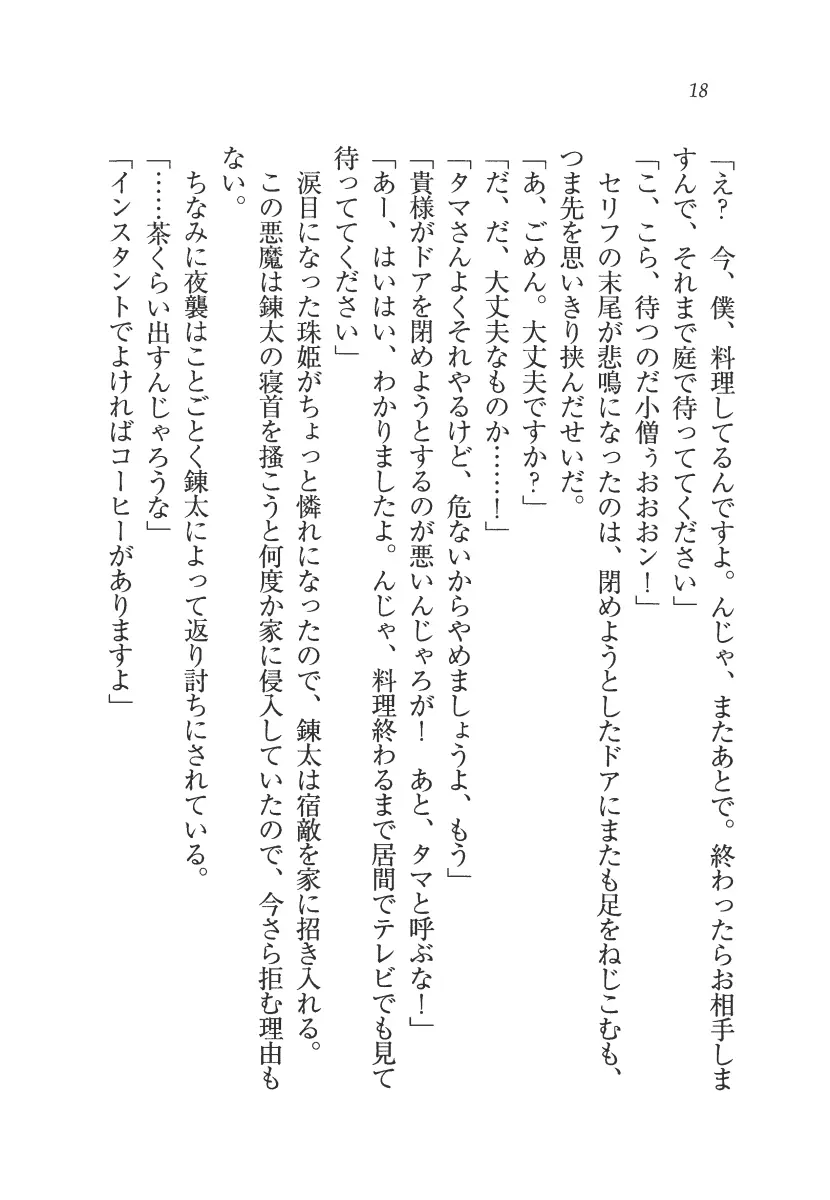 18
「え？　今、僕、料理してるんですよ。んじゃ、またあとで。終わったらお相手しま
すんで、それまで庭で待っててください」
「こ、こら、待つのだ小僧ぅおおおン！」
　セリフの末尾が悲鳴になったのは、閉めようとしたドアにまたも足をねじこむも、
つま先を思いきり挟んだせいだ。
「あ、ごめん。大丈夫ですか？」
「だ、だ、大丈夫なものか……！」
「タマさんよくそれやるけど、危ないからやめましょうよ、もう」
「貴様がドアを閉めようとするのが悪いんじゃろが！　あと、タマと呼ぶな！」
「あー、はいはい、わかりましたよ。んじゃ、料理終わるまで居間でテレビでも見て
待っててください」
　涙目になった珠姫がちょっと憐れになったので、錬太は宿敵を家に招き入れる。
　この悪魔は錬太の寝首を掻こうと何度か家に侵入していたので、今さら拒む理由も
ない。
　ちなみに夜襲はことごとく錬太によって返り討ちにされている。
「……茶くらい出すんじゃろうな」
「インスタントでよければコーヒーがありますよ」